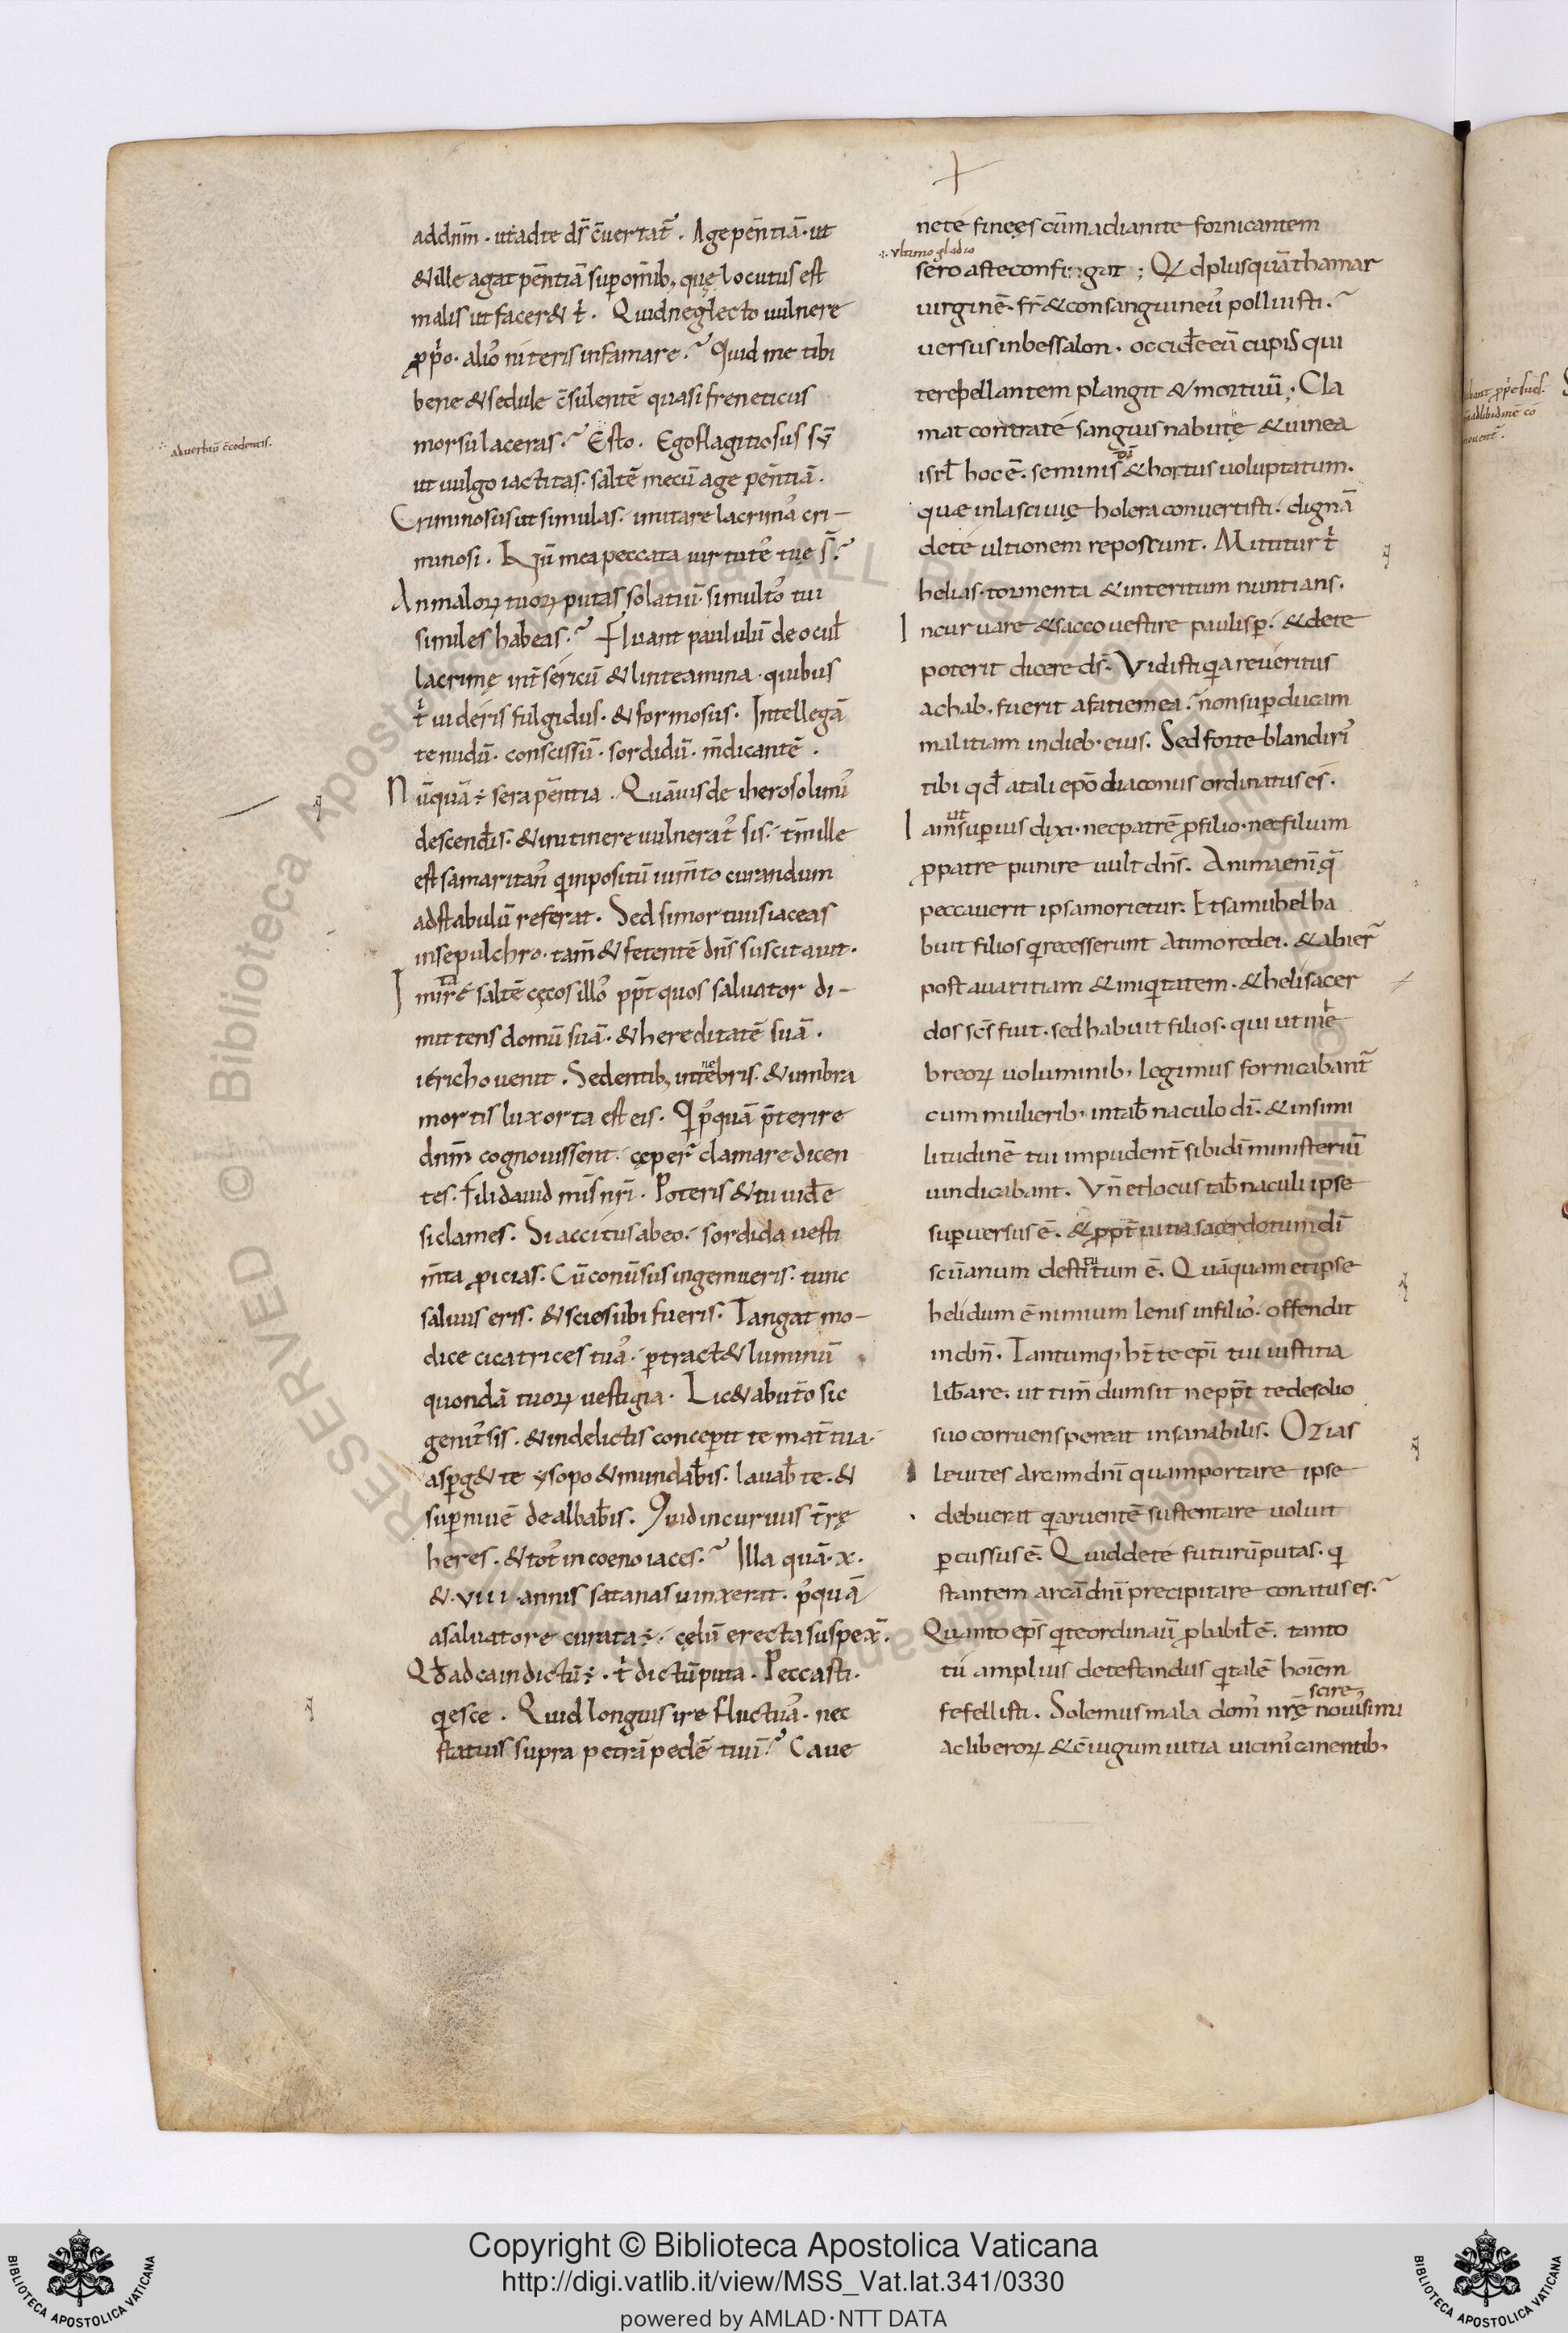 addnm̄ · ut adte ds̄ c̄uertat᷑ · Age pēn̄tiā · ut
&ille agat pēn̄tiā sup om̄ib; quę locutus est
malis ut facer& t᷑ · Quid neglecto uulnere
ꝓp̄o · alio᷒ niteris infamare ·? Quid me tibi
bene & sedule c̄sulentē quasi freneticus
morsu laceras ·? Esto · Ego flagitiosus sū
ut uulgo iactitas · saltē mecū age pēn̄tiā ·
Criminosus ut simulas · imitare lacrima᷒ cri-
minosi · Nū mea peccata uirtute᷒ tuę s̄?
An maloꝝ tuoꝝ putas solatiū · si multo᷒ tui
similes habeas ·? Fluant paululū de ocul̄
lacrimę int̄ sericū & linteamina · quibus
t᷑ uideris fulgidus · & formosus · Intellegā
te nudū · conscissū · sordidū · m̄dicantē ·
Nūquā ÷ sera pēn̄tia · Quāuis de iherosolimi᷒
descend̄is · & in itinere uulnerat᷒ sis · tm̄ ille
est samaritan᷒ q̇ impositū ium̄to curandum
ad stabulū referat · Sed si mortuus iaceas
in sepulchro · tam̄ & fetentē dn̄s suscitauit ·
Imitare saltē cęcos illo᷒ ppt̄ quos saluator di-
mittens domū suā · & hereditatē suā ·
iericho uenit · Sedentib; in tenebris · & umbra
mortis lux orta est eis · Q p᷒quā p̄terire
dnm̄ cognouissent · cęper̄ clamare dicen
tes · fili dauid mis̄ nr̄i · Poteris & tu uid̄e
si clames · Si accitus ab eo · sordida uesti
m̄ta ꝓicias · Cū conūsus ingemueris · tunc
saluus eris · & scies ubi fueris · Tangat mo-
dice cicatrices tua᷒ · ꝑtract& luminū
quondā tuoꝝ uestigia · Lic& ab ut̄o sic
genit᷒ sis · & in delictis concepit te mat̄ tua ·
asꝑg& te ysopo & mundab̄is · lauab̄ te · &
sup niuē dealbab̄is · Quid incuruus t̄rę
heres · & tot᷒ in coeno iaces ·? Illa quā · x ·
& · VIII · annis satanas uinxerat · p᷒quā
a saluatore curata ÷ · cęlū erecta suspex̄ ·
Qd̄ ad cain dictū ÷ · t᷑ dictū puta · Peccasti ·
q̇esce · Quid longius ire fluctua᷒ · nec
statuis supra petrā pedē tuū ·? Caue
∴ aduerbiū c̄cedentis ·
ne te fineęs cū madianite fornicantem
∴ ultimo gladio
sero aste confingat ; Qd plusquā thamar
uirginē · fr̄ & consanguineū polluisti ·?
uersus in bessalon · occid̄e eū cupis qui
te reƀellantem plangit & mortuū · Cla
mat contra te sanguis nabutę & uinea
isrl̄ hoc ē · seminis dī & hortus uoluptatum ·
quae in lasciuię holera conuertisti · dignā
de te ultionem reposcunt · Mittitur t᷑
helias · tormenta & interitum nuntians ·
Incuruare & sacco uestire paulisꝑ · & de te
poterit dicere ds̄ · Vidisti q̇a reueritus
achab · fuerit a facie mea · non sup ducam
malitiam in dieb · eius · Sed forte blandiri᷒
tibi qd̄ a tali ep̄o diaconus ordinatus es ·
Iam ut superius dixi · nec patrē ꝓ filio · nec filium
ꝓ patre punire uult dn̄s · Anima enī q̄
peccauerit ipsa morietur · Et samuhel ha
buit filios q̇ recesserunt a timore dei · & abier̄
post auaritiam & iniq̇tatem · & heli sacer
dos sc̄s fuit · sed habuit filios · qui ut in he
breoꝝ uoluminib; legimus fornicabant᷑
cum mulierib; in tab̄naculo dī · & in simi
litudinē tui impudent̄ sibi dī ministeriū
uindicabant · Vn̄ et locus tab̄naculi ipse
supuersus ē · & ꝓppt̄ uitia sacerdotum dī
sc̄uarium destitutum ē · Quāquam et ipse
heli dum ē nimium lenis in filio᷒ · offendit
in dm̄ · Tantumq; h̄t te ep̄i tui iustitia
lib̄are · ut tim̄dum sit ne ppt̄ te de solio
suo corruens pereat insanabilis · Ozias
leuites arcam dn̄i quam portare ipse
debuerat q̇a ruentē sustentare uoluit
ꝑcussus ē · Quid de te futurū putas · q̇
stantem arcā dn̄i precipitare conatus es ·?
Quanto ep̄s q̇ te ordinau᷑ ꝓbabil̄ ē · tanto
tu amplius detestandus q̇ talē hoīem
fefellisti · Solemus mala dom᷒ nr̄ę scire nouissimi
ac liberoꝝ & c̄iugum uitia uicini᷒ canentib;
Copyright © Biblioteca Apostolica Vaticana
http://digi.vatlib.it/view/MSS_Vat.lat.341/0330
powered by AMLAD·NTT DATA